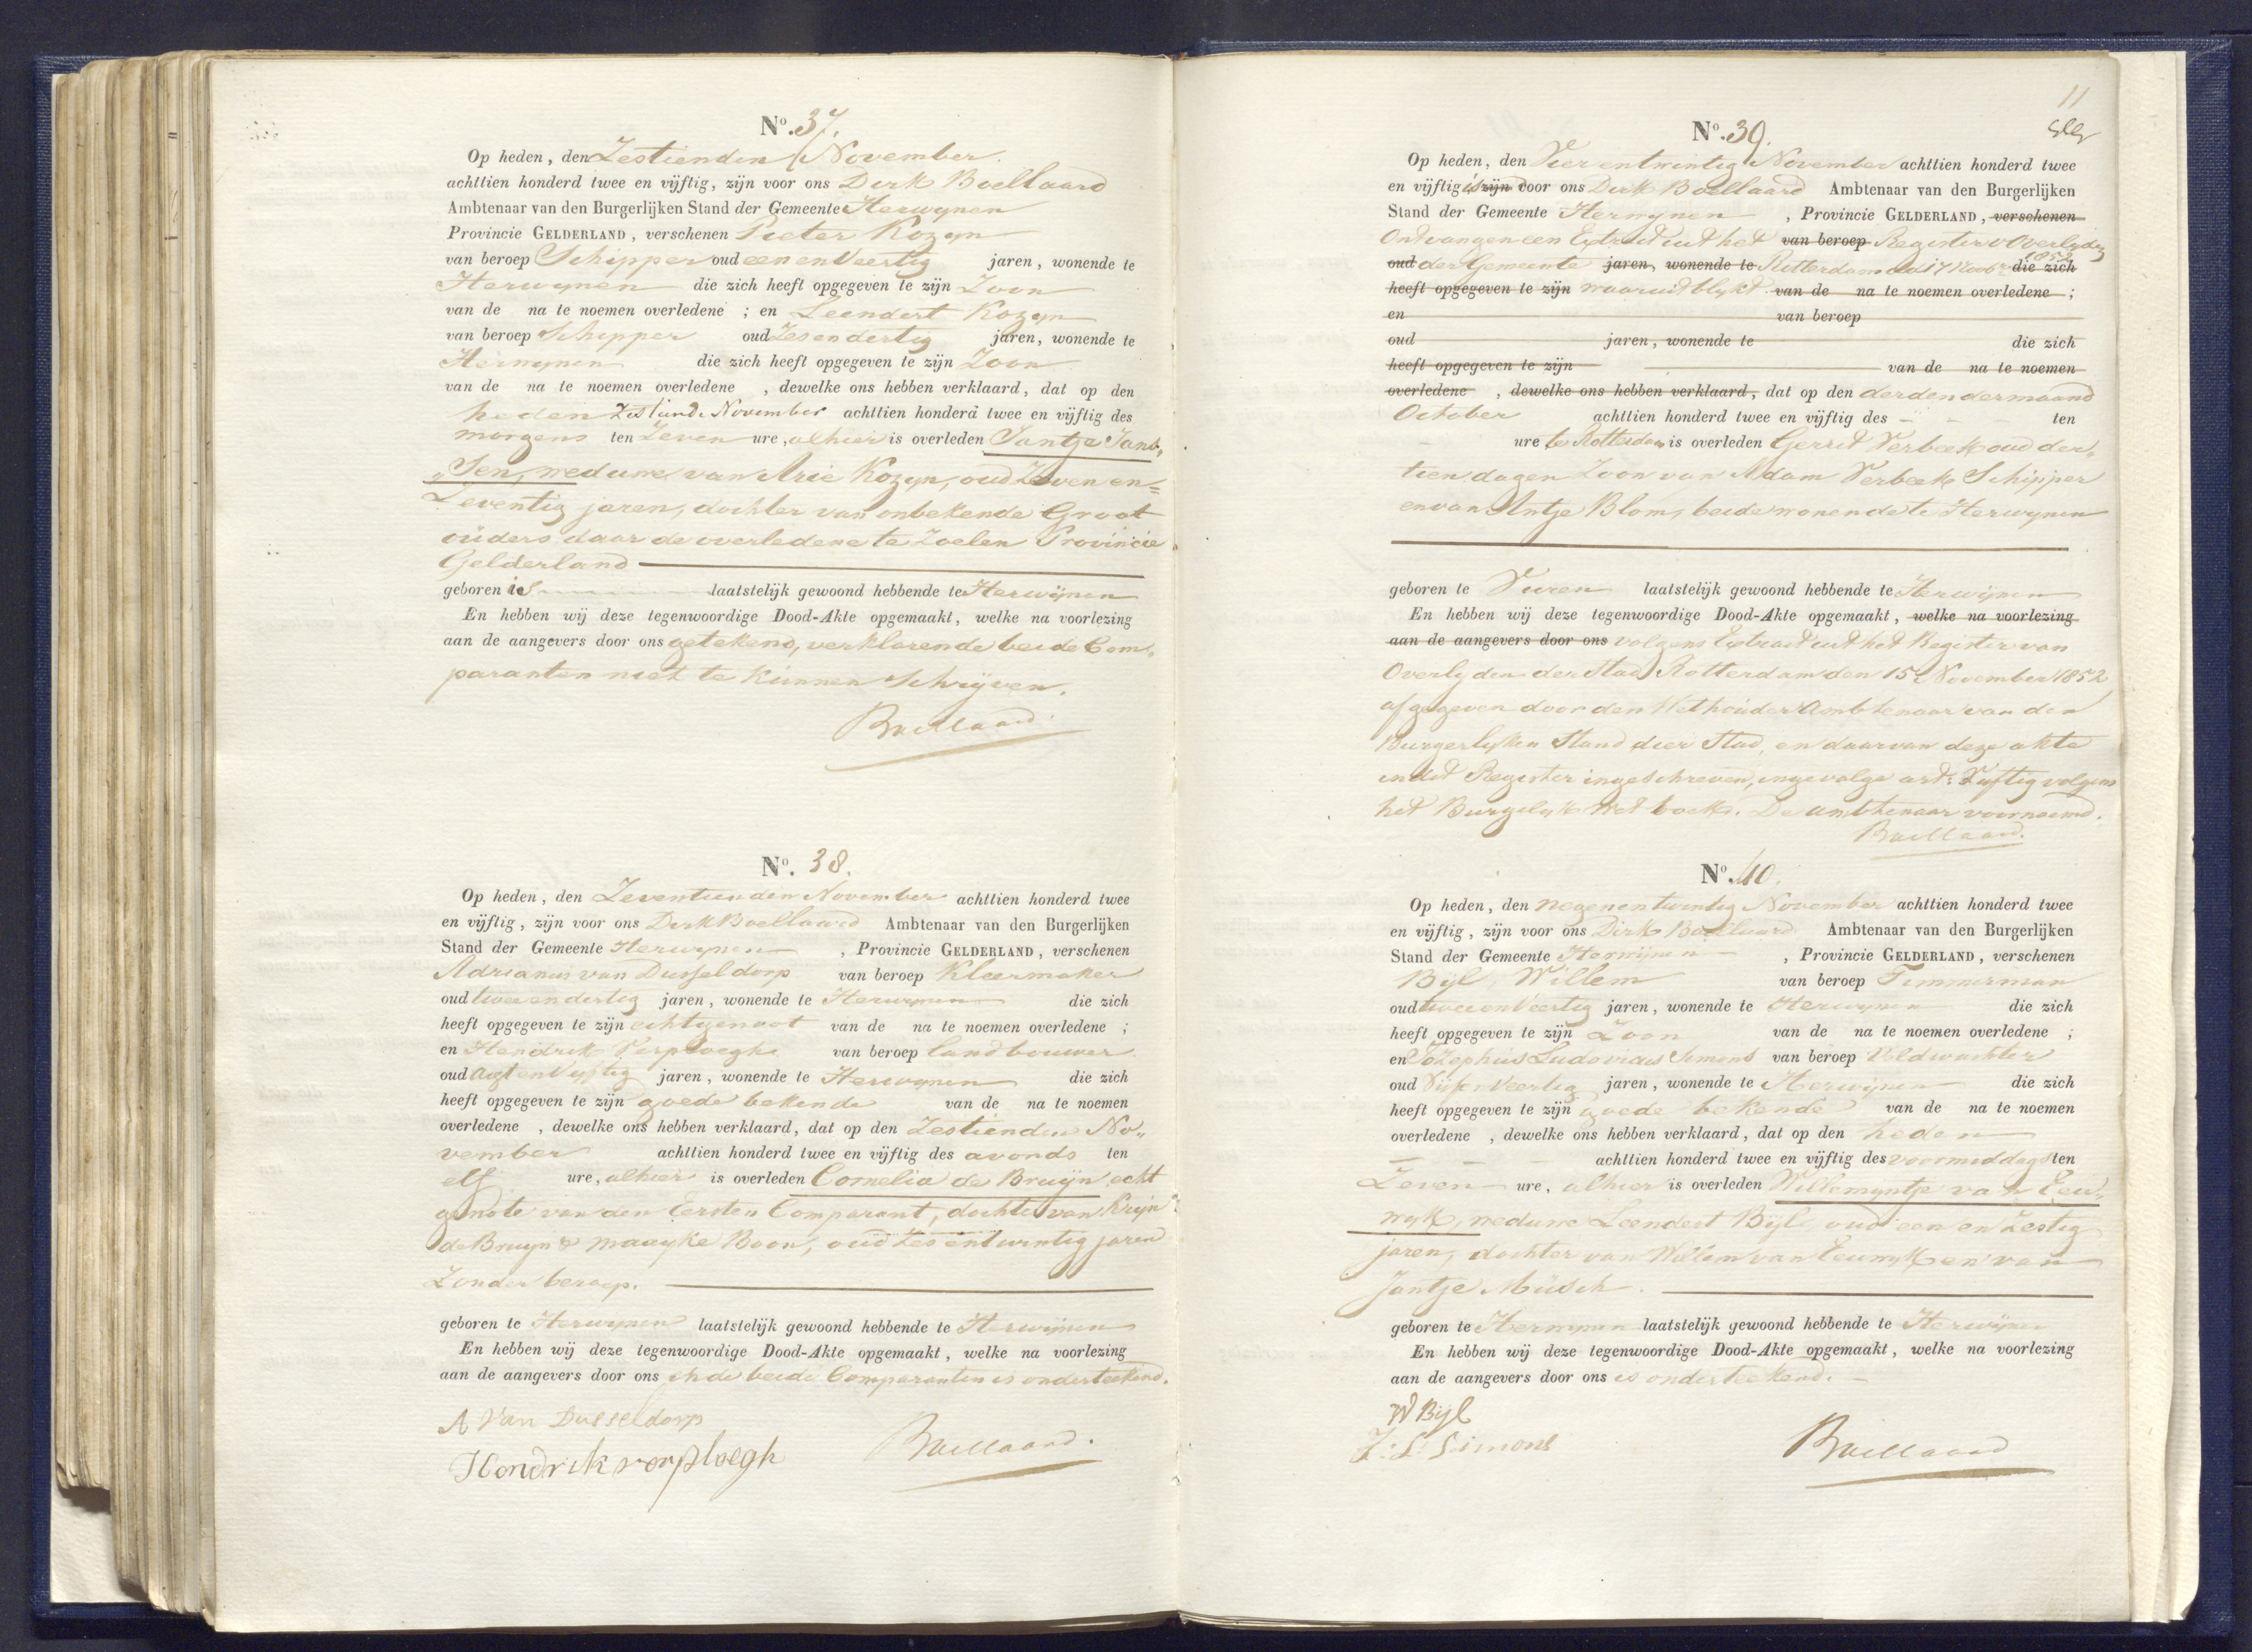 No. 37.
Op heden, den Zestienden November
achttien honderd twee en vijftig, zijn voor ons Dirk Boellaard
Ambtenaar van den Burgerlijken Stand der Gemeente Herwynen
Provincie GELDERLAND, verschenen Pieter Kozyn
van beroep Schipper oud een en Veertig jaren, wonende te
Herwynen die zich heeft opgegeven te zijn Zoon
van de na te noemen overledene ; en Leendert Kozyn
van beroep Schipper oud Zesendertig jaren, wonende te
Herwynen die zich heeft opgegeven te zijn Zoon
van de na te noemen overledene , dewelke ons hebben verklaard, dat op den
heden Zestiende November achttien honderd twee en vijftig des
morgens ten Zeven ure, alhier is overleden Jantje Jans„
„sen, weduwe van Arie Kozyn, oud Zeven en=
Zeventig jaren, dochter van onbekende Groot
ouders daar de overledene te Zoelen Provincie
Gelderland
geboren is laatstelijk gewoond hebbende te Herwijnen
En hebben wij deze tegenwoordige Dood-Akte opgemaakt, welke na voorlezing
aan de aangevers door ons getekend, verklarende beide Com„
paranten niet te kunnen Schrijven.
Boellaard
No. 38.
Op heden, den Zeventienden November achttien honderd twee
en vijftig, zijn voor ons Dirk Boellaard Ambtenaar van den Burgerlijken
Stand der Gemeente Herwynen , Provincie GELDERLAND, verschenen
Adrianus van Dusseldorp van beroep Kleermaker
oud twee en dertig jaren, wonende te Herwynen die zich
heeft opgegeven te zijn echtgenoot van de na te noemen overledene ;
en Hendrik Verploegh van beroep landbouwer
oud Agt en Vyftig jaren, wonende te Herwynen die zich
heeft opgegeven te zijn goede bekende van de na te noemen
overledene , dewelke ons hebben verklaard, dat op den Zestienden No„
vember achttien honderd twee en vijftig des avonds ten
elf ure, alhier is overleden Cornelia de Bruijn echt
genote van den Eersten Comparant, dochter van Krijn
de Bruyn & Maayke Boon, oud Zes en twintig jaren
Zonder beroep.
geboren te Herwynen laatstelijk gewoond hebbende te Herwijnen
En hebben wij deze tegenwoordige Dood-Akte opgemaakt, welke na voorlezing
aan de aangevers door ons en de beide Comparanten is onderteekend.
A Van Dusseldorp
Hendrik verploegh Boellaard.
11
No. 39.
Op heden, den Vier en twintig November achttien honderd twee
en vijftig is zijn voor ons Dirk Boellaard Ambtenaar van den Burgerlijken
Stand der Gemeente Herwynen , Provincie GELDERLAND, verschenen
Ontvangen een Extract uit het van beroep Register v Overlyden
oud der Gemeente jaren, wonende te Rotterdam dd 17 Novbr 1852 die zich
heeft opgegeven te zijn waaruit blykt van de na te noemen overledene ;
en van beroep
oud jaren, wonende te die zich
heeft opgegeven te zijn van de na te noemen
overledene , dewelke ons hebben verklaard, dat op den derden der maand
October achttien honderd twee en vijftig des ten
ure te Rotterdam is overleden Gerrit Verbeek oud der„
tien dagen Zoon van Adam Verbeek Schipper
en van Antje Blom, beide wonende te Herwynen
geboren te Vuren laatstelijk gewoond hebbende te Herwijnen
En hebben wij deze tegenwoordige Dood-Akte opgemaakt, welke na voorlezing
aan de aangevers door ons volgens Extract uit het Register van
Overlyden der Stad Rotterdam den 15 November 1852
afgegeven door den Wethouder Ambtenaar van den
Burgerlyken Stand dier Stad, en daarvan deze akte
in dit Register ingeschreven, ingevolge art: Vyftig volgens
het Burgelyk Wet boek. De ambtenaar voornoemd.
Boellaard.
No. 40.
Op heden, den Negenentwintig November achttien honderd twee
en vijftig, zijn voor ons Dirk Boellaard Ambtenaar van den Burgerlijken
Stand der Gemeente Herwijnen , Provincie GELDERLAND, verschenen
Bijl, Willem van beroep Timmerman
oud twee en Veertig jaren, wonende te Herwynen die zich
heeft opgegeven te zijn Zoon van de na te noemen overledene ;
en Jozephus Ludovicus Simons van beroep Veldwachter
oud Vijf en Veertig jaren, wonende te Herwijnen die zich
heeft opgegeven te zijn goede bekende van de na te noemen
overledene , dewelke ons hebben verklaard, dat op den heden
achttien honderd twee en vijftig des voormiddags ten
Zeven ure, alhier is overleden Willemyntje van Eeu„
wyk, weduwe Leendert Bijl, oud een en Zestig
jaren, dochter van Willem van Eeuwyk en van
Jantje Müsch.
geboren te Herwynen laatstelijk gewoond hebbende te Herwijnen
En hebben wij deze tegenwoordige Dood-Akte opgemaakt, welke na voorlezing
aan de aangevers door ons is onderteekend.
W Bijl
J: L: Simons Boellaard